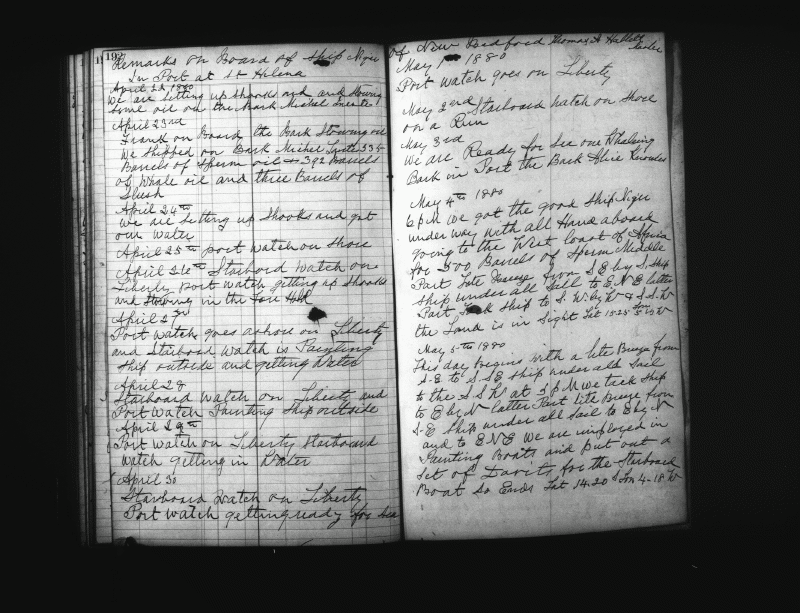 192
Remarks on Board of Ship Niger
In Port at St Helena
April 22 1880
We are setting up Shooks and and Stowing
Some oil on the Bark
April 23nd
Frank on Board the Bark Stowing oil
We Shipped on Bark 335
Barrels of Sperm oil 392 Barrels
of Whale oil and three Barrels of
Slush
April 24th
We are Setting up Shooks and got
our Water
April 25th port watch on Shore
April 26th Starboard Watch on
Liberty Port watch getting up Shooks
and Stowing in the Fore Hold
April 27
Port watch goes ashore on Liberty
and Starboard watch is Painting
Ship outside and getting Water
April 28
Starboard Watch on Liberty and
Port Watch Painting Ship outside
April 29th
Port Watch on Liberty Starboard
watch getting in Water
April 30
Starboard Watch on Liberty
Port watch getting ready for Sea
of New Bedford Thomas A Hallett
May 1 1880
Port Watch goes on Liberty
May 2nd Starboard watch on Shore
on a Run
May 3rd
We are Ready for Sea one Whaling
Bark in Port the Bark Alice Knowles
May 4th 1880
6 P.M. We got the good Ship Niger
under way with all Hand aboard
going to the West Coast of Africa
for 500 Barrels of Sperm Middle
Part Lite Breeze from S.E by S.
Ship under all Sail to E.N.E. latter
Part Ship to S. W. by W & S.S.W
the Land is in Sight Lat 15.25 Lon
May 5th 1880
This day Begins with a lite Breeze from
S-E to S.S.E Ship under all Sail
to the S.S.W at 5 P.M we tack Ship
to E by N latter Part lite Breeze from
S-E Ship under all Sail to E by N
and to E N E We are imployed in
Painting Boats and Put out a
Set of Davits for the Starboard
Boat So Ends Lat 14.20 Lon 4-18 W